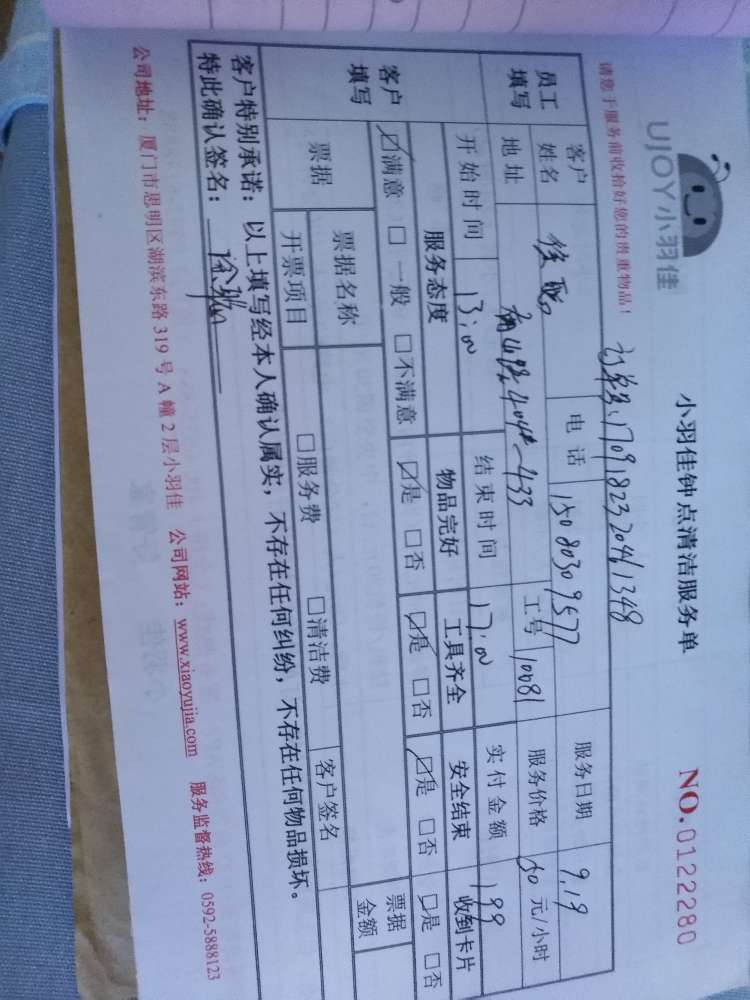 UJOY小羽佳
小羽佳钟点清洁服务单
NO.0122280
请您于服务前收拾好您的贵重物品！
1709182320461348
员工填写
客户姓名
电话 15080309577
服务日期 9.19
地址
工号 10081
服务价格 50 元/小时
开始时间 13:00
结束时间 17:00
实付金额 199
客户填写
服务态度 物品完好 工具齐全 安全结束 收到卡片
☑满意 □一般 □不满意 ☑是 □否 ☑是 □否 ☑是 □否 □是 □否
票据
票据名称
票据金额
开票项目 □服务费 □清洁费
客户签名
客户特别承诺：以上填写经本人确认属实，不存在任何纠纷，不存在任何物品损坏。
特此确认签名：
公司地址：厦门市思明区湖滨东路319号A幢2层小羽佳 公司网站：www.xiaoyujia.com 服务监督热线：0592-5888123